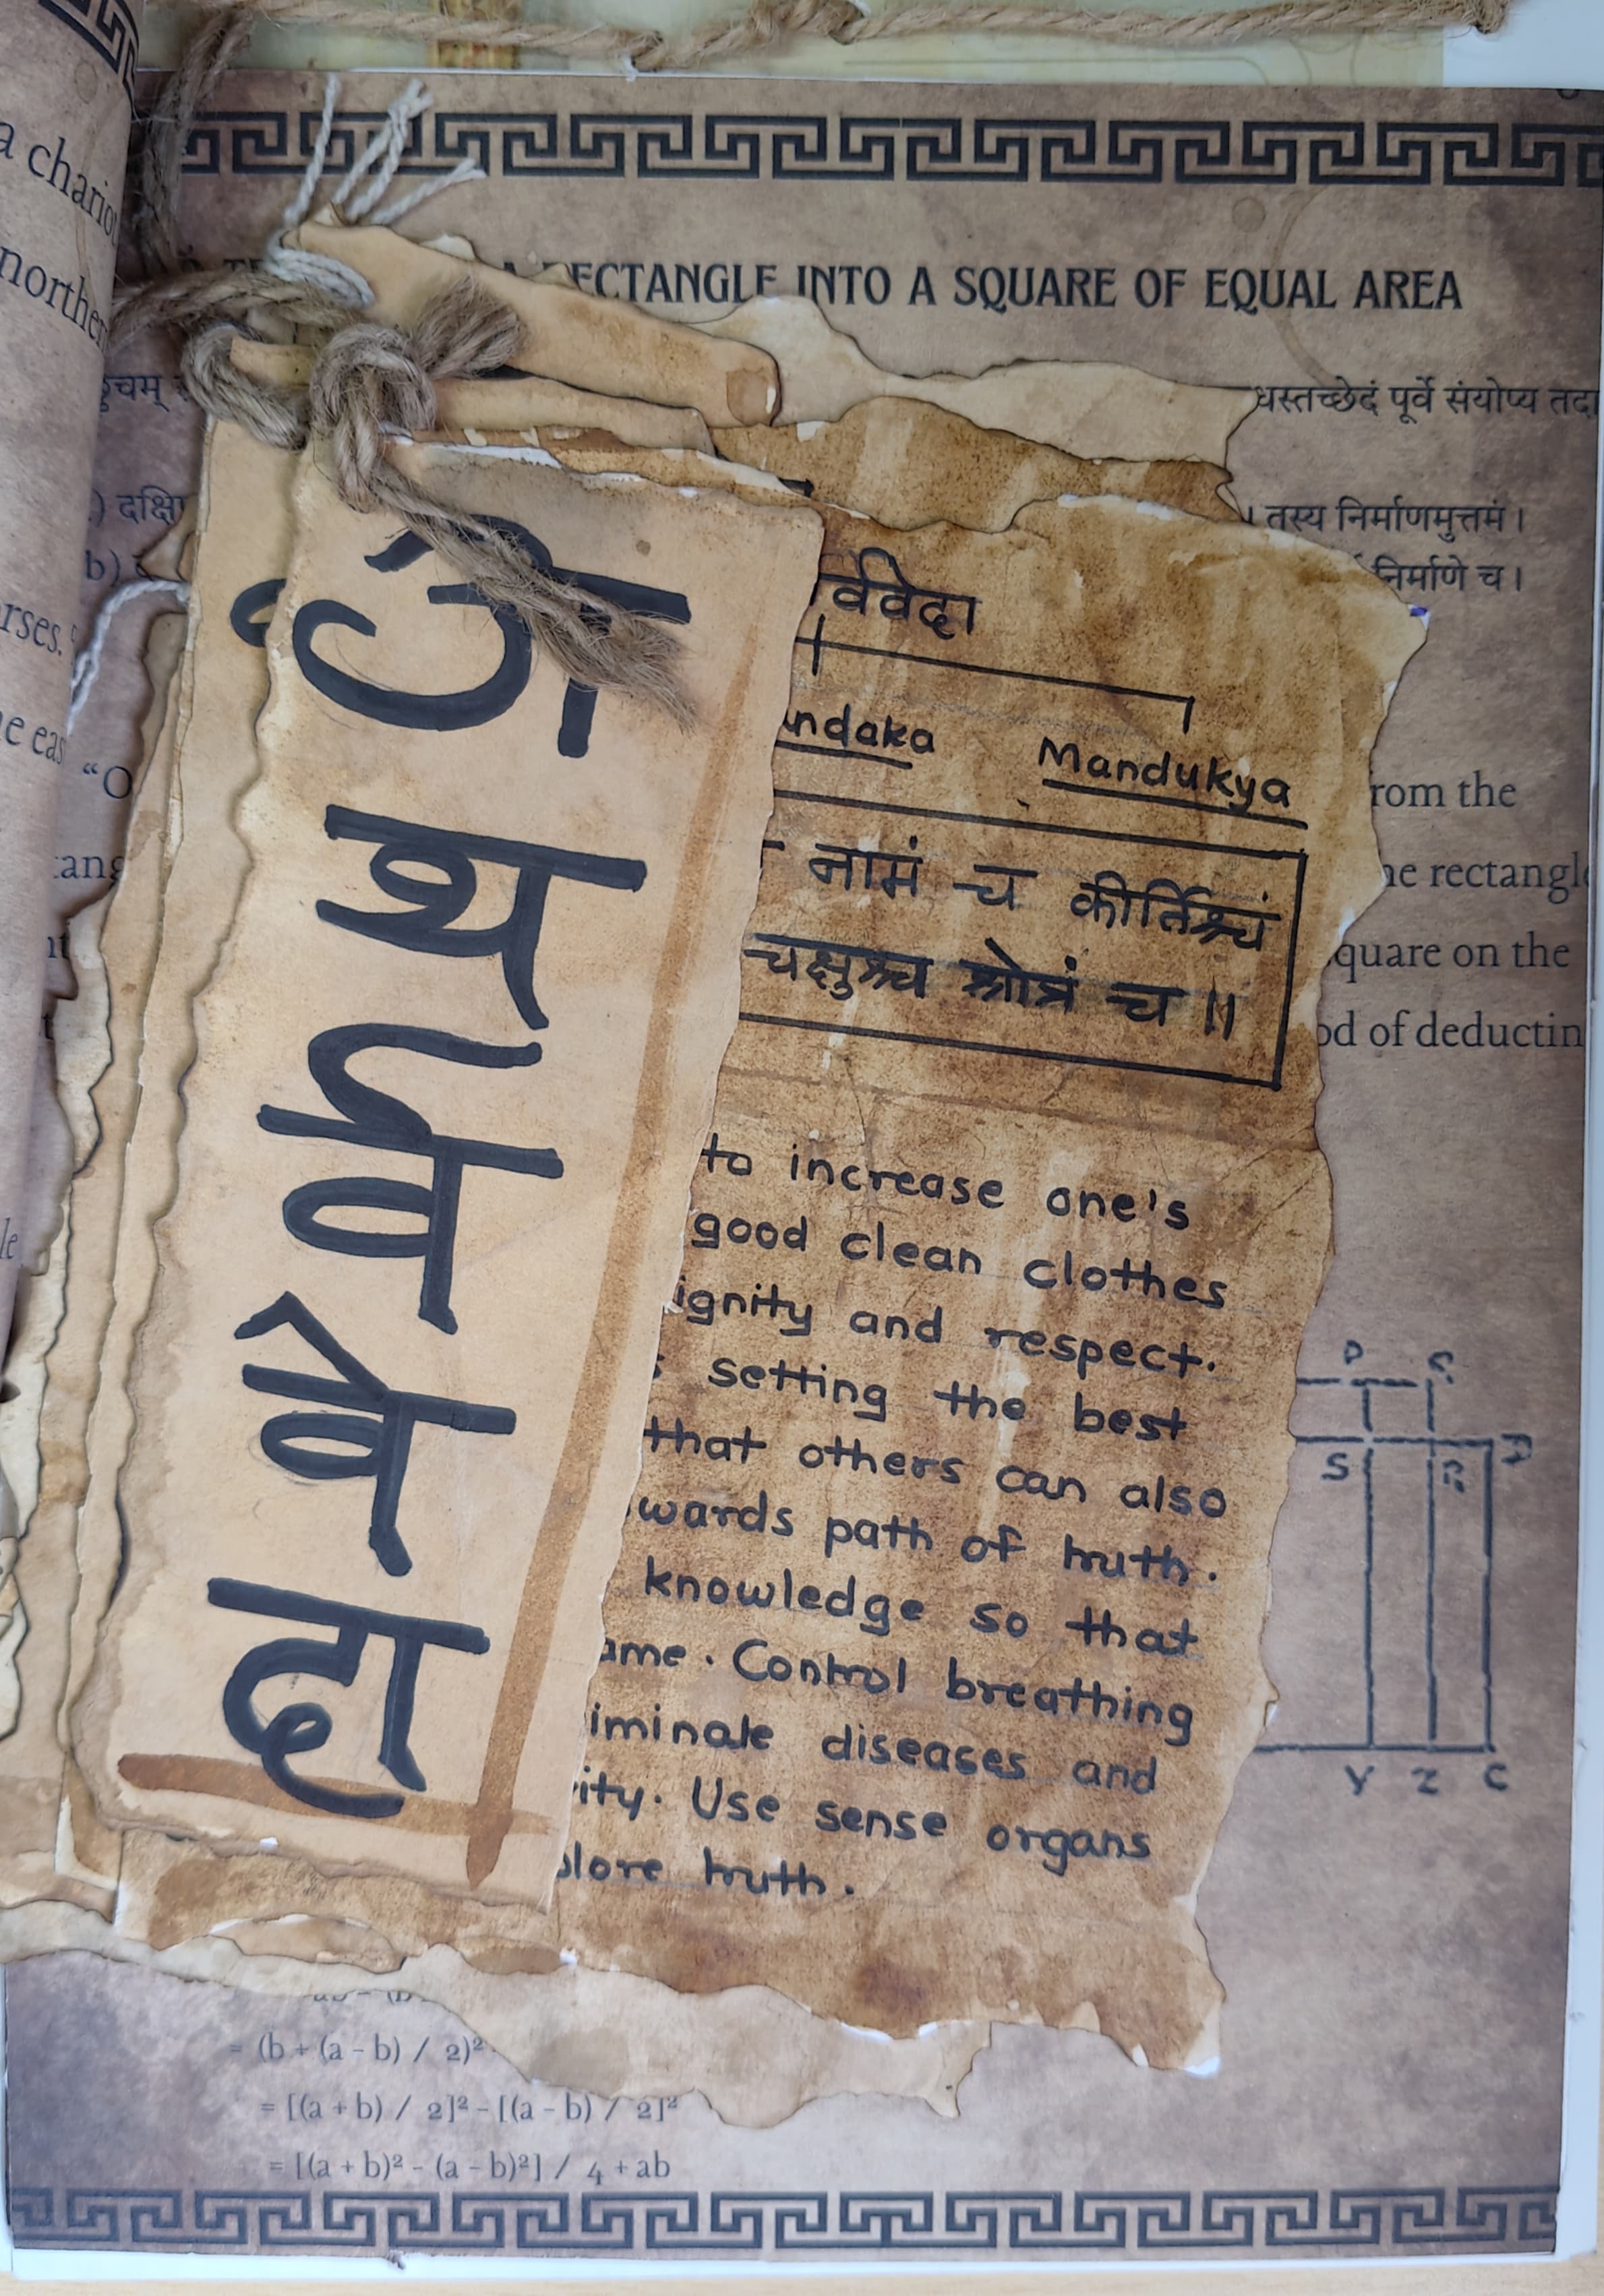 a chariot
northern
rses.
RECTANGLE INTO A SQUARE OF EQUAL AREA
धस्तच्छेदं पूर्वे संयोप्य तदा
। तस्य निर्माणमुत्तमं।
निर्माणे च।
b)
"O
rom the
he rectangle
quare on the
od of deductin
अथर्ववेदा
र्ववेदा
ndaka Mandukya
नामं च कीर्तिश्चं
चक्षुश्च श्रोत्रं च ॥
to increase one's
good clean clothes
ignity and respect.
s setting the best
that others can also
wards path of truth.
knowledge so that
ame. Control breathing
iminate diseases and
ity. Use sense organs
plore truth.
S R
Y Z C
= (b + (a - b) / 2)²
= [(a + b) / 2]² - [(a - b) / 2]²
= [(a + b)² - (a - b)²] / 4 + ab